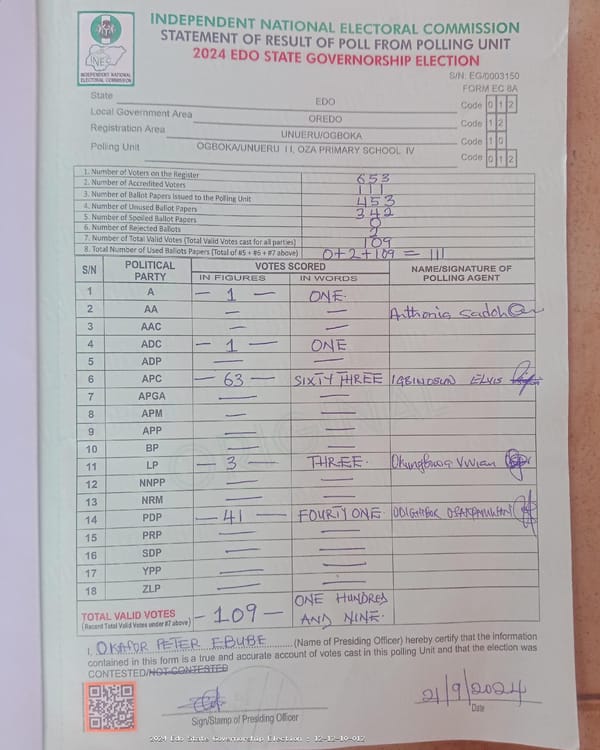 INDEPENDENT NATIONAL ELECTORAL COMMISSION
STATEMENT OF RESULT OF POLL FROM POLLING UNIT
2024 EDO STATE GOVERNORSHIP ELECTION
INEC
INDEPENDENT NATIONAL
ELECTORAL COMMISSION
S/N: EG/0003150
FORM EC 8A
State EDO Code 0 1 2
Local Government Area OREDO Code 1 2
Registration Area UNUERU/OGBOKA Code 1 0
Polling Unit OGBOKA/UNUERU I I, OZA PRIMARY SCHOOL IV Code 0 1 2
1. Number of Voters on the Register 653
2. Number of Accredited Voters 111
3. Number of Ballot Papers Issued to the Polling Unit 453
4. Number of Unused Ballot Papers 342
5. Number of Spoiled Ballot Papers 0
6. Number of Rejected Ballots 2
7. Number of Total Valid Votes (Total Valid Votes cast for all parties) 109
8. Total Number of Used Ballots Papers (Total of #5 + #6 + #7 above) 0+2+109 = 111
S/N POLITICAL PARTY VOTES SCORED NAME/SIGNATURE OF POLLING AGENT
IN FIGURES IN WORDS
1 A — 1 — ONE.
2 AA — — Anthonia Sadoh
3 AAC — —
4 ADC — 1 — ONE
5 ADP — —
6 APC — 63 — SIXTY THREE IGBINOSUN ELVIS
7 APGA — —
8 APM — —
9 APP — —
10 BP — —
11 LP — 3 — THREE. Okungbowa Vivian
12 NNPP — —
13 NRM — —
14 PDP — 41 — FOURTY ONE
15 PRP — —
16 SDP — —
17 YPP — —
18 ZLP — —
TOTAL VALID VOTES — 109 — ONE HUNDRED
(Record Total Valid Votes under #7 above) AND NINE.
I, OKAFOR PETER EBUBE (Name of Presiding Officer) hereby certify that the information
contained in this form is a true and accurate account of votes cast in this polling Unit and that the election was
CONTESTED/NOT CONTESTED
21/9/2024
Sign/Stamp of Presiding Officer Date
2024 Edo State Governorship Election : 12-12-10-012